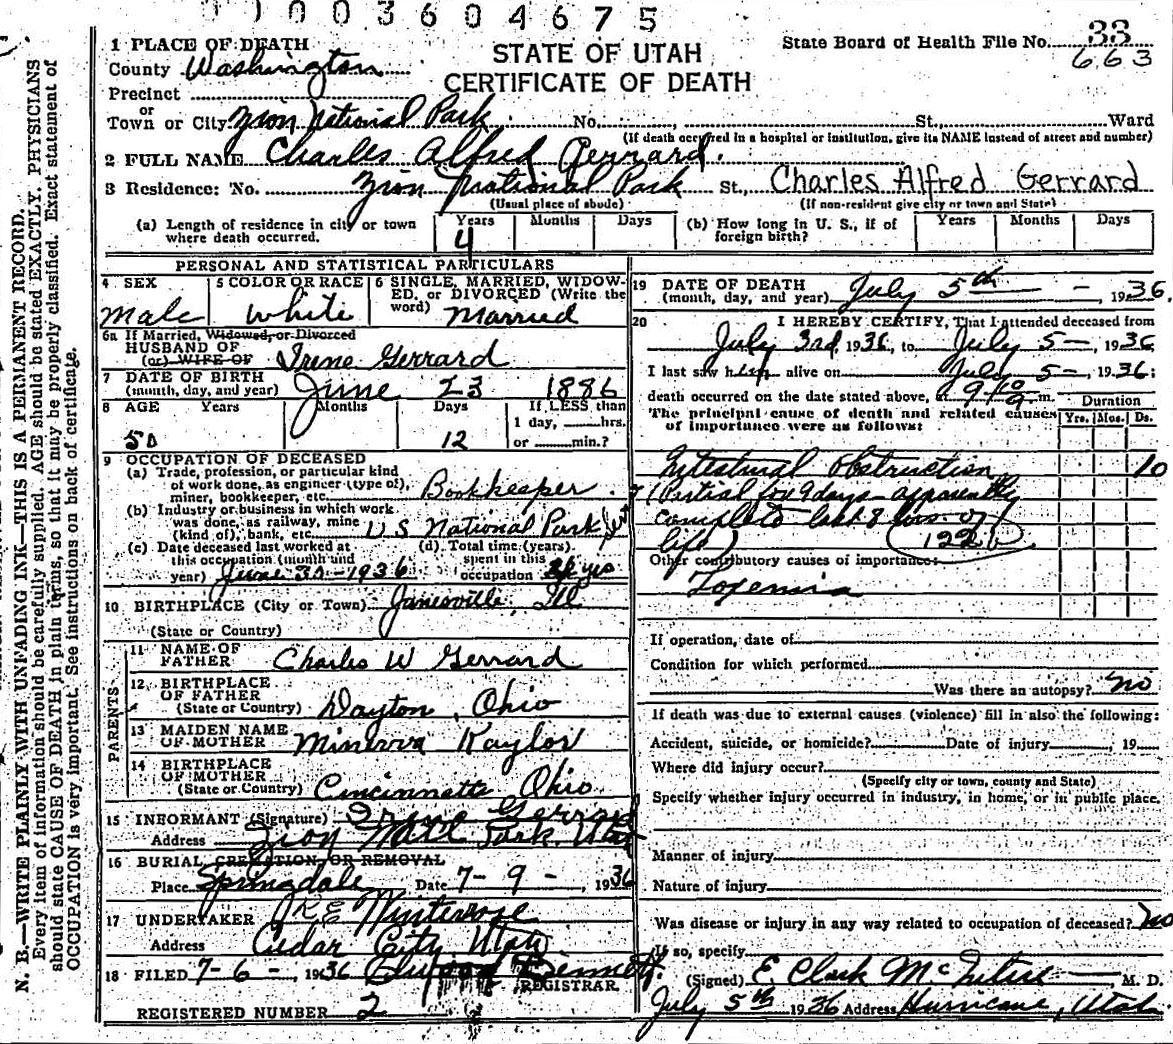 1003604675
STATE OF UTAH
CERTIFICATE OF DEATH
State Board of Health File No. 33
663
1 PLACE OF DEATH
County Washington
Precinct
or
Town or City Zion National Park No. St., Ward
(If death occurred in a hospital or institution, give its NAME instead of street and number)
2 FULL NAME Charles Alfred Gerrard.
3 Residence: No. Zion National Park St., Charles Alfred Gerrard
(Usual place of abode) (If non-resident give city or town and State)
(a) Length of residence in city or town where death occurred. Years 4 Months Days
(b) How long in U. S., if of foreign birth? Years Months Days
PERSONAL AND STATISTICAL PARTICULARS
4 SEX Male
5 COLOR OR RACE White
6 SINGLE, MARRIED, WIDOWED, or DIVORCED (Write the word) Married
6a If Married, Widowed, or Divorced
HUSBAND OF
(or) WIFE OF Irene Gerrard
7 DATE OF BIRTH
(month, day, and year) June 23 1886
8 AGE Years 50 Months Days 12 If LESS than 1 day, hrs. or min.?
9 OCCUPATION OF DECEASED
(a) Trade, profession, or particular kind of work done, as engineer (type of), miner, bookkeeper, etc. Bookkeeper
(b) Industry or business in which work was done, as railway, mine (kind of), bank, etc. U S National Park
(c) Date deceased last worked at this occupation (month and year) June 30-1936
(d) Total time (years) spent in this occupation yrs
10 BIRTHPLACE (City or Town) Janesville, Ill
(State or Country)
PARENTS
11 NAME OF FATHER Charles W Gerrard
12 BIRTHPLACE OF FATHER
(State or Country) Dayton, Ohio
13 MAIDEN NAME OF MOTHER Minerva Kaylor
14 BIRTHPLACE OF MOTHER
(State or Country) Cincinnatti Ohio
15 INFORMANT (Signature) Irene Gerrard
Address Zion Natl Park. Utah
16 BURIAL, CREMATION, OR REMOVAL
Place Springdale Date 7-9-, 1936
17 UNDERTAKER Winterrose
Address Cedar City Utah
18 FILED 7-6-, 1936 Bennett.
REGISTRAR
REGISTERED NUMBER 2
19 DATE OF DEATH
(month, day, and year) July 5th - , 1936.
20 I HEREBY CERTIFY, That I attended deceased from
July 3rd, 1936, to July 5-, 1936
I last saw him alive on July 5-, 1936;
death occurred on the date stated above, at m.
The principal cause of death and related causes of importance were as follows:
Duration
Yrs. Mos. Ds.
Intestinal obstruction 10
(Partial for 9 days - apparently
complete last 8 hrs. of
life) 122b
Other contributory causes of importance:
Toxemia
If operation, date of
Condition for which performed
Was there an autopsy? No
If death was due to external causes (violence) fill in also the following:
Accident, suicide, or homicide? Date of injury , 19
Where did injury occur?
(Specify city or town, county and State)
Specify whether injury occurred in industry, in home, or in public place.
Manner of injury
Nature of injury
Was disease or injury in any way related to occupation of deceased? No
If so, specify
(Signed) E. Clark McIntire M. D.
July 5th 1936 Address Hurricane, Utah
N. B.—WRITE PLAINLY WITH UNFADING INK—THIS IS A PERMANENT RECORD.
Every item of information should be carefully supplied. AGE should be stated EXACTLY. PHYSICIANS
should state CAUSE OF DEATH in plain terms, so that it may be properly classified. Exact statement of
OCCUPATION is very important. See instructions on back of certificate.